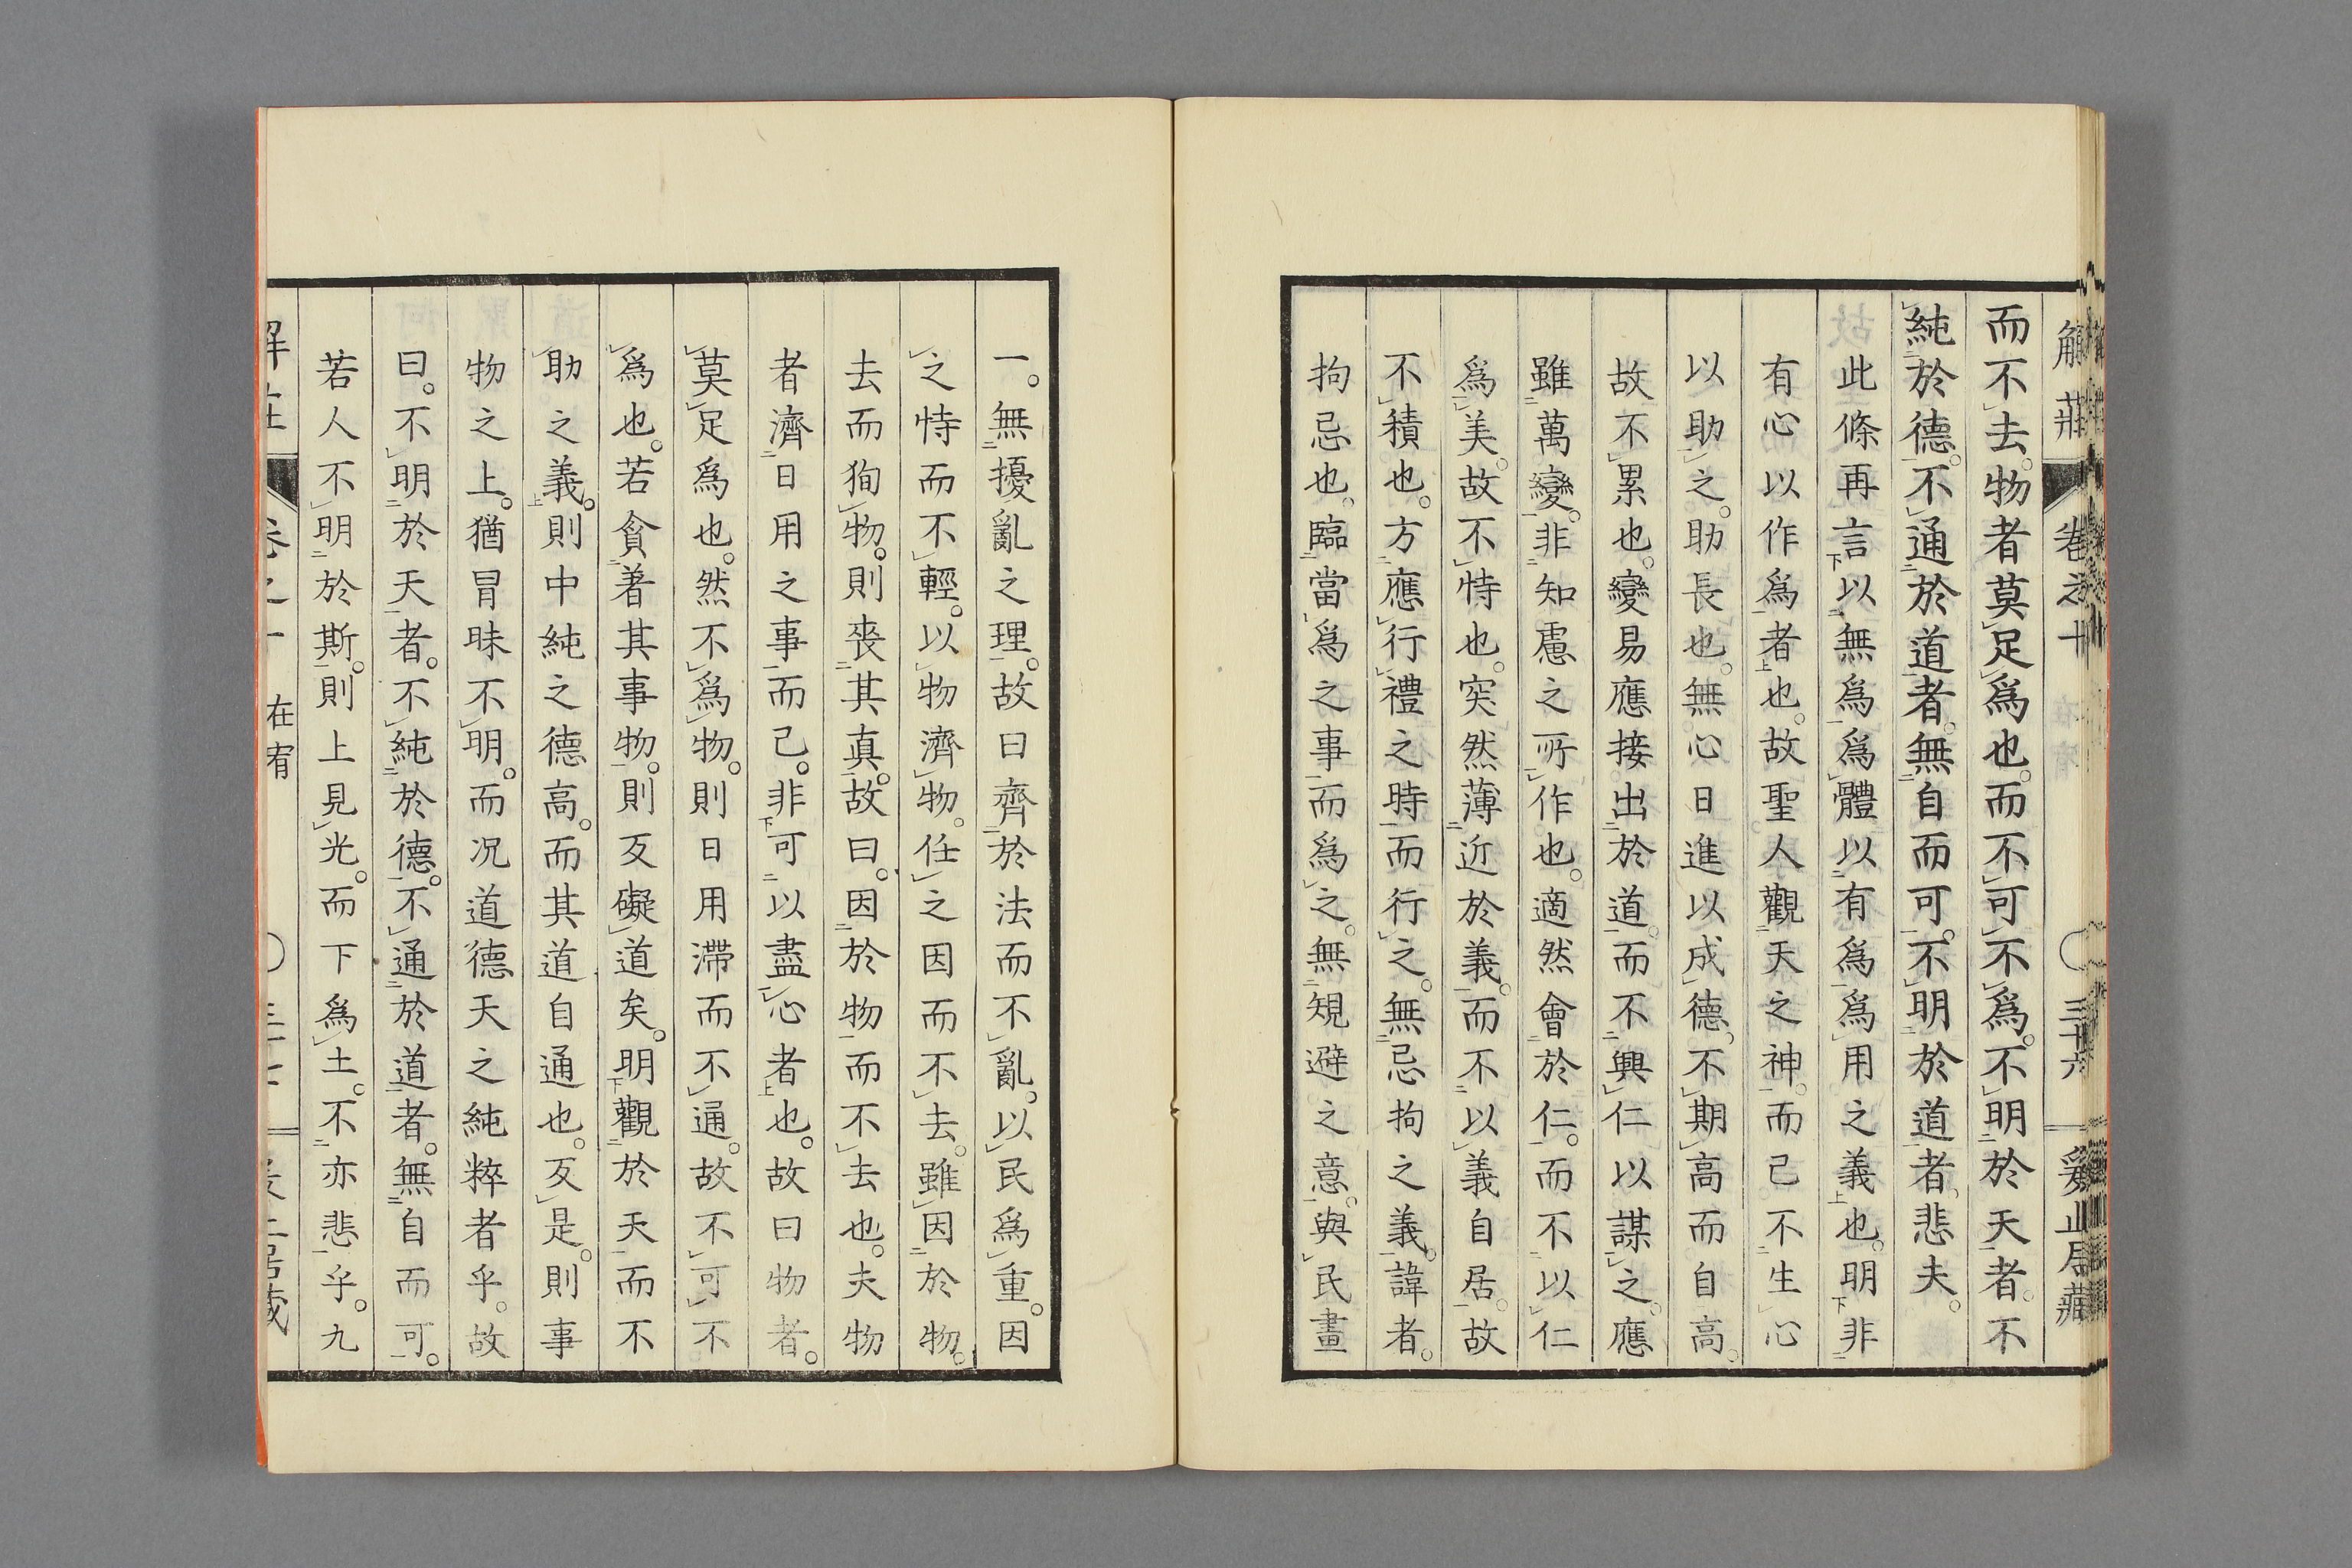 解莊 卷之十 在宥 〇三十六 奚止居藏
而不去。物者莫足爲也。而不可不爲。不明於天者。不
純於德。不通於道者。無自而可。不明於道者、悲夫。
此條再言以無爲爲體以有爲爲用之義也。明非
有心以作爲者也。故聖人觀天之神。而已不生心
以助之。助長也。無心日進以成德。不期高而自高。
故不累也。變易應接出於道。而不興仁以謀之。應
雖萬變。非知慮之所作也。適然會於仁。而不以仁
爲美。故不恃也。突然薄近於義。而不以義自居。故
不積也。方應行禮之時而行之。無忌拘之義。諱者。
拘忌也。臨當爲之事而爲之。無規避之意。與民畫
一。無擾亂之理。故曰齊於法而不亂。以民爲重。因
之恃而不輕。以物濟物。任之因而不去。雖因於物。
去而狥物。則喪其真。故曰。因於物而不去也。夫物
者濟日用之事而已。非可以盡心者也。故曰物者。
莫足爲也。然不爲物。則日用滯而不通。故不可不
爲也。若貪着其事物。則反礙道矣。明觀於天而不
助之義。則中純之德高。而其道自通也。反是。則事
物之上。猶冒昧不明。而況道德天之純粹者乎。故
曰。不明於天者。不純於德。不通於道者。無自而可。
若人不明於斯。則上見光。而下爲土。不亦悲乎。九
在宥